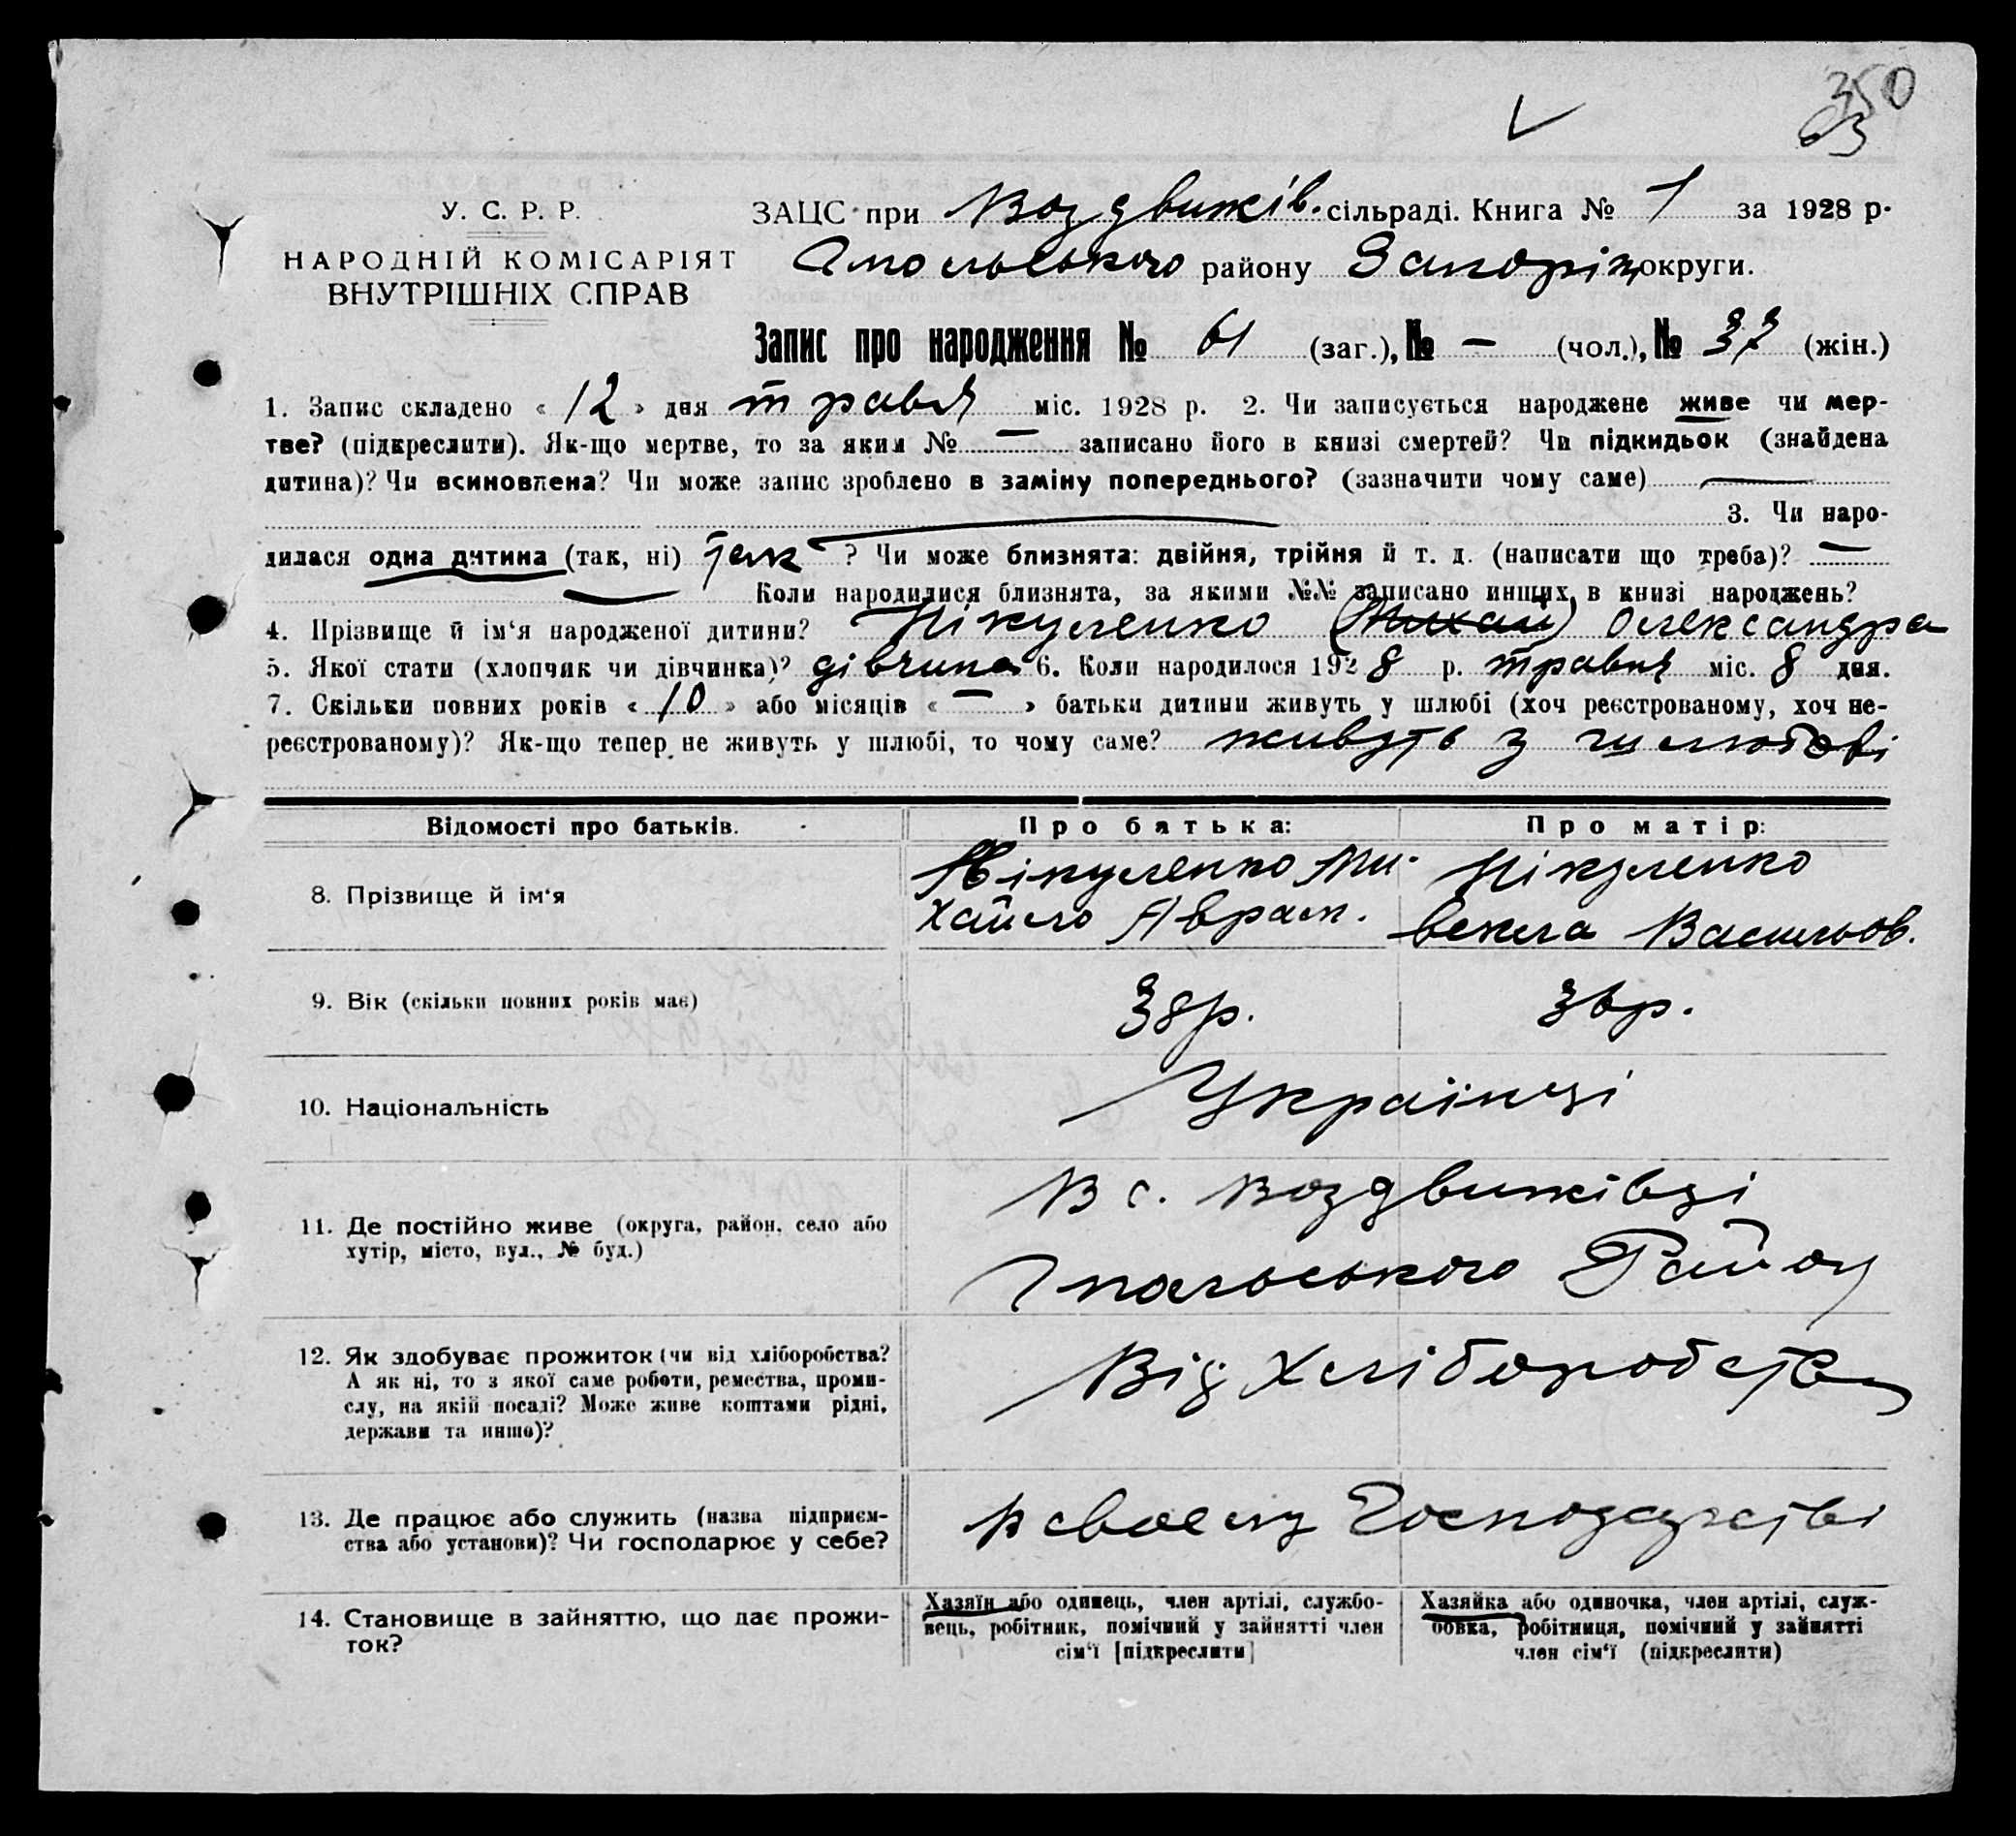 350
63
У. С. Р. Р.
НАРОДНІЙ КОМІСАРІЯТ
ВНУТРІШНІХ СПРАВ
ЗАЦС при Воздвижів. сільраді. Книга № 1 за 1928 р.
району Запоріж округи.
Запис про народження № 61 (заг.), № — (чол.), № 37 (жін.)
1. Запис складено « 12 » дня травня міс. 1928 р. 2. Чи записується народжене живе чи мер-
тве? (підкреслити). Як-що мертве, то за яким № — записано його в книзі смертей? Чи підкидьок (знайдена
дитина)? Чи всиновлена? Чи може запис зроблено в заміну попереднього? (зазначити чому саме) —
3. Чи наро-
дилася одна дитина (так, ні) так ? Чи може близнята: двійня, трійня й т. д. (написати що треба)? —
Коли народилися близнята, за якими №№ записано инших в книзі народжень?
4. Прізвище й ім‘я народженої дитини? Нікуленко (Михай) Олександра
5. Якої стати (хлопчик чи дівчинка)? дівчина 6. Коли народилося 1928 р. травня міс. 8 дня.
7. Скільки повних років « 10 » або місяців « — » батьки дитини живуть у шлюбі (хоч реєстрованому, хоч не-
реєстрованому)? Як-що тепер не живуть у шлюбі, то чому саме? живуть з шлюбові
Відомості про батьків.
Про батька:
Про матір:
8. Прізвище й ім‘я
Нікуленко Ми-
хайло Аврам.
Нікуленко
Векла Васильов.
9. Вік (скільки повних років має)
38р.
36р.
10. Національність
Українці
11. Де постійно живе (округа, район, село або
хутір, місто, вул., № буд.)
В с. Воздвижівці
Району
12. Як здобуває прожиток (чи від хліборобства?
А як ні, то з якої саме роботи, ремества, проми-
слу, на якій посаді? Може живе коштами рідні,
держави та инше)?
Від Хліборобства
13. Де працює або служить (назва підприєм-
ства або установи)? Чи господарює у себе?
В своему Господарстві
14. Становище в зайняттю, що дає прожи-
ток?
Хазяїн або одинець, член артілі, службо-
вець, робітник, помічний у зайнятті член
сім‘ї [підкреслити]
Хазяйка або одиночка, член артілі, служ-
бовка, робітниця, помічний у зайнятті
член сім‘ї (підкреслити)